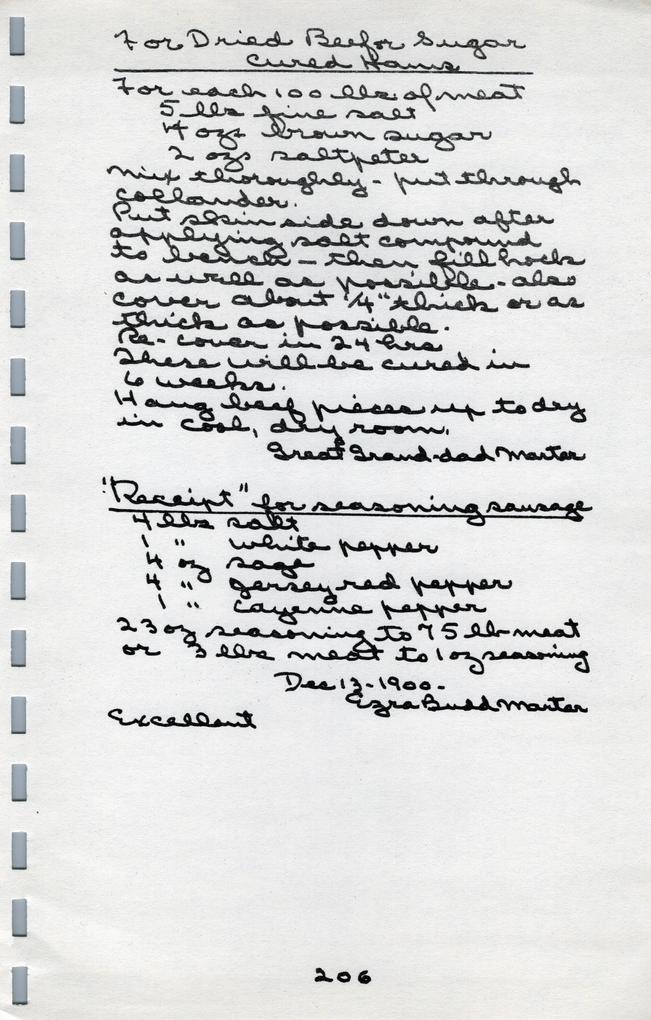 For Dried Beef or Sugar
Cured Hams
For each 100 lbs of meat
5 lbs fine salt
4 ozs brown sugar
2 ozs saltpeter
Mix thoroughly - put through
collander.
Put skin side down after
applying salt compound
to bench - then fill hocks
as well as possible - also
cover about 1/4" thick or as
thick as possible.
Re-cover in 24 hrs
These will be cured in
6 weeks.
Hang beef pieces up to dry
in cool, dry room.
Great Grand-dad Marter
"Receipt" for seasoning sausage
4 lbs salt
1 " white pepper
4 oz sage
4 " Jersey red pepper
1 " cayenne pepper
23 oz seasoning to 75 lb meat
or 3 lbs meat to 1 oz seasoning
Dec 13-1900-
Ezra Budd Marter
Excellant
206